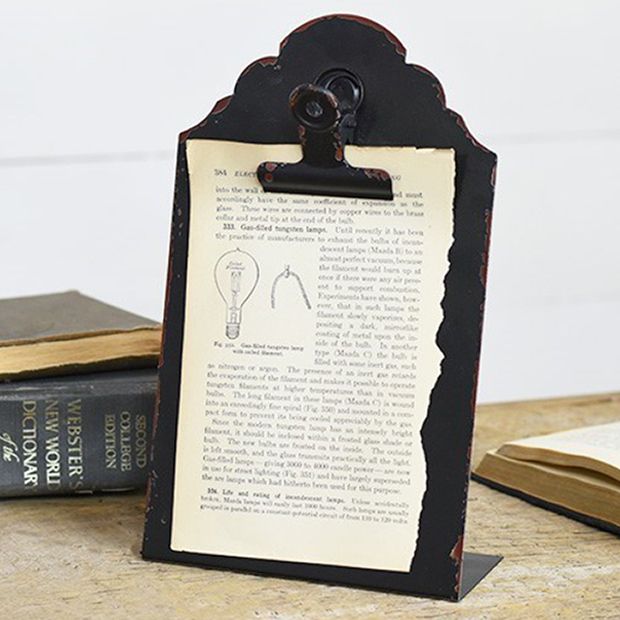 384 ELECT NG
into the wall and must
accordingly have the same coefficient of expansion as the
glass. These wires are connected by copper wires to the brass
collar and metal tip at the end of the bulb.
333. Gas-filled tungsten lamps. Until recently it has been
the practice of manufacturers to exhaust the bulbs of incan-
descent lamps (Mazda B) to an
almost perfect vacuum, because
the filament would burn up at
once if there were any air pres-
ent to support combustion.
Experiments have shown, how-
ever, that in such lamps the
filament slowly vaporizes, de-
positing a dark, mirrorlike
coating of metal upon the in-
side of the bulb. In another
type (Mazda C) the bulb is
filled with some inert gas, such
Fig. Gas-filled tungsten lamp
with coiled filament.
as nitrogen or argon. The presence of an inert gas retards
the evaporation of the filament and makes it possible to operate
tungsten filaments at higher temperatures than in vacuum
bulbs. The long filament in these lamps (Mazda C) is wound
into an exceedingly fine spiral (Fig. 350) and mounted in a com-
pact form to prevent its being cooled appreciably by the gas
Since the modern tungsten lamp has an intensely bright
filament, it should be inclosed within a frosted glass shade or
bulb. The new bulbs are frosted on the inside. The outside
is left smooth, and the glass transmits practically all the light.
Gas-filled lamps — giving 3000 to 4000 candle power — are now
in use for street lighting (Fig. 351) and have largely superseded
the arc lamps which had hitherto been used for this purpose.
334. Life and rating of incandescent lamps. Unless accidentally
broken, Mazda lamps will easily last 1000 hours. Such lamps are usually
grouped in parallel on a constant-potential circuit of from 110 to 120 volts
WEBSTER'S
NEW WORLD
DICTIONARY
of the
SECOND
COLLEGE
EDITION